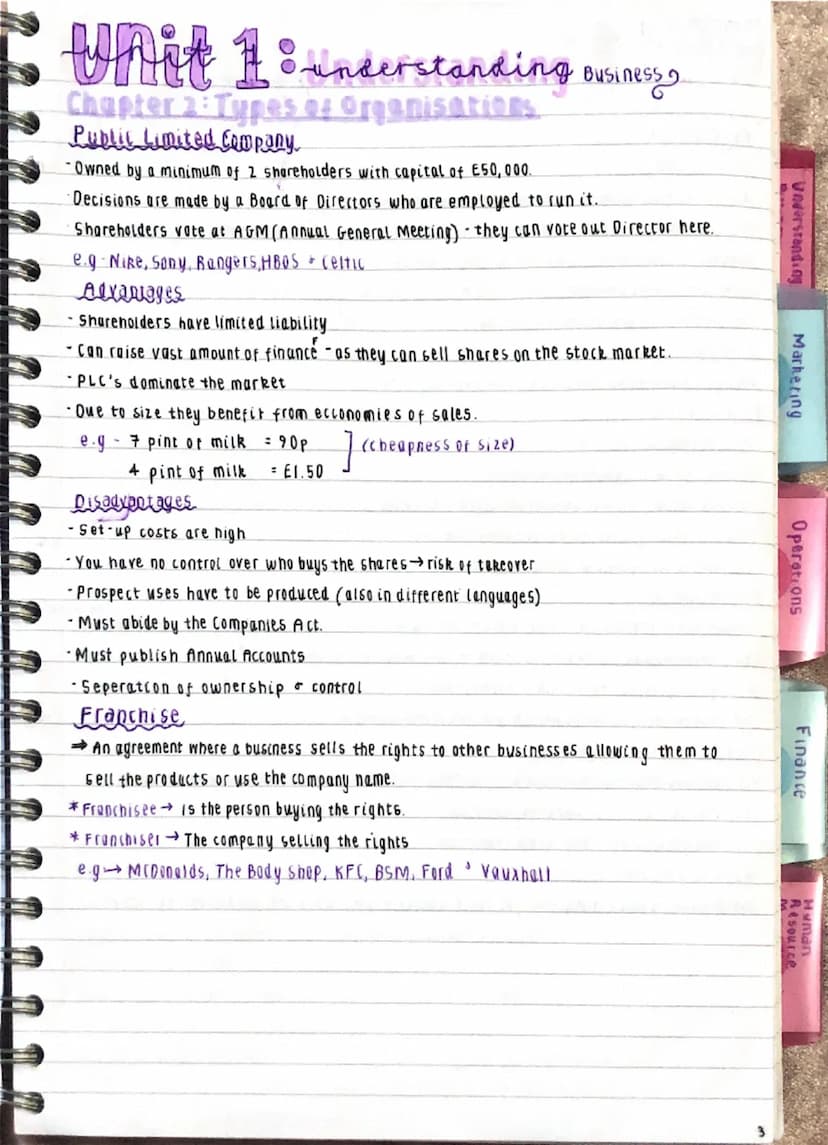 Unit 1: Understanding Business
Chapter 2: Types of Organisations
Public Limited Company
- Owned by a minimum of 2 shareholders with capital of £50,000.
- Decisions are made by a Board of Directors who are employed to run it.
Shareholders vote at AGM (Annual General Meeting) - they can vote out Director here.
e.g - Nike, Sony, Rangers, HBOS + Celtic
Advantages
- Shareholders have limited liability
- Can raise vast amount of finance - as they can sell shares on the stock market.
- PLC's dominate the market
- Due to size they benefit from ecconomies of sales.
e.g - 7 pint of milk = 90p
4 pint of milk = £1.50
(cheapness of size)
Disadvantages
- Set-up costs are high
- You have no control over who buys the shares → risk of takeover
- Prospect uses have to be produced (also in different languages)
- Must abide by the Companies Act.
- Must publish Annual Accounts
- Seperation of ownership & control
Franchise
⇒ An agreement where a business sells the rights to other businesses allowing them to
sell the products or use the company name.
* Franchisee → is the person buying the rights.
* Franchiser → The company selling the rights
e.g → McDonalds, The Body Shop, KFC, BSM, Ford & Vauxhall
3
Understanding
Marketing
Operations
Finance
Human
Resource